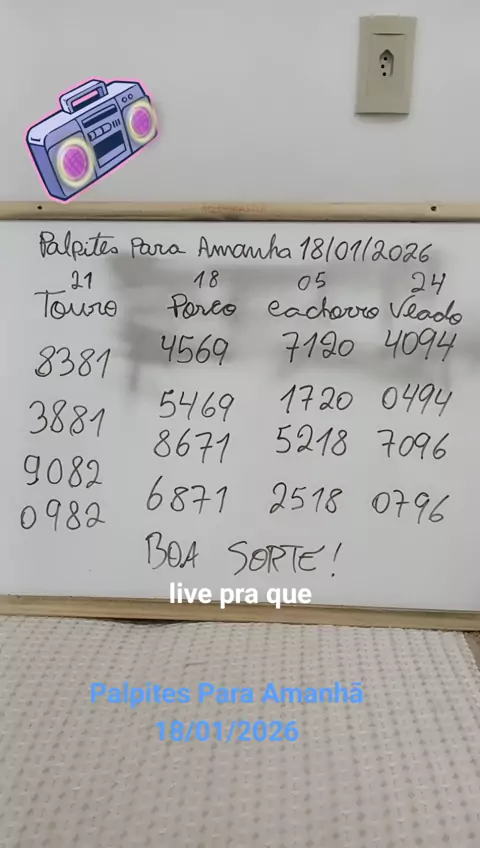 Palpites Para Amanha 18/01/2026
21 18 05 24
Touro Porco Cachorro Veado
8381 4569 7120 4094
3881 5469 1720 0494
9082 8671 5218 7096
0982 6871 2518 0796
BOA SORTE!
live pra que
Palpites Para Amanhã
18/01/2026